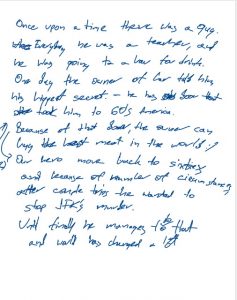 Once upon a time there was a guy.
Everyday he was a teacher, and
he was going to a bar for drink.
One day the owner of bar told him
his biggest secret - he has door that
took him to 60's America.
Because of that door, the owner can
buy the best meat in the world.
Our hero move back to sixties
and because of number of circumstances
after couple trips he wanted to
stop JFK's murder.
Until finally he manages to that
and world has changed a lot